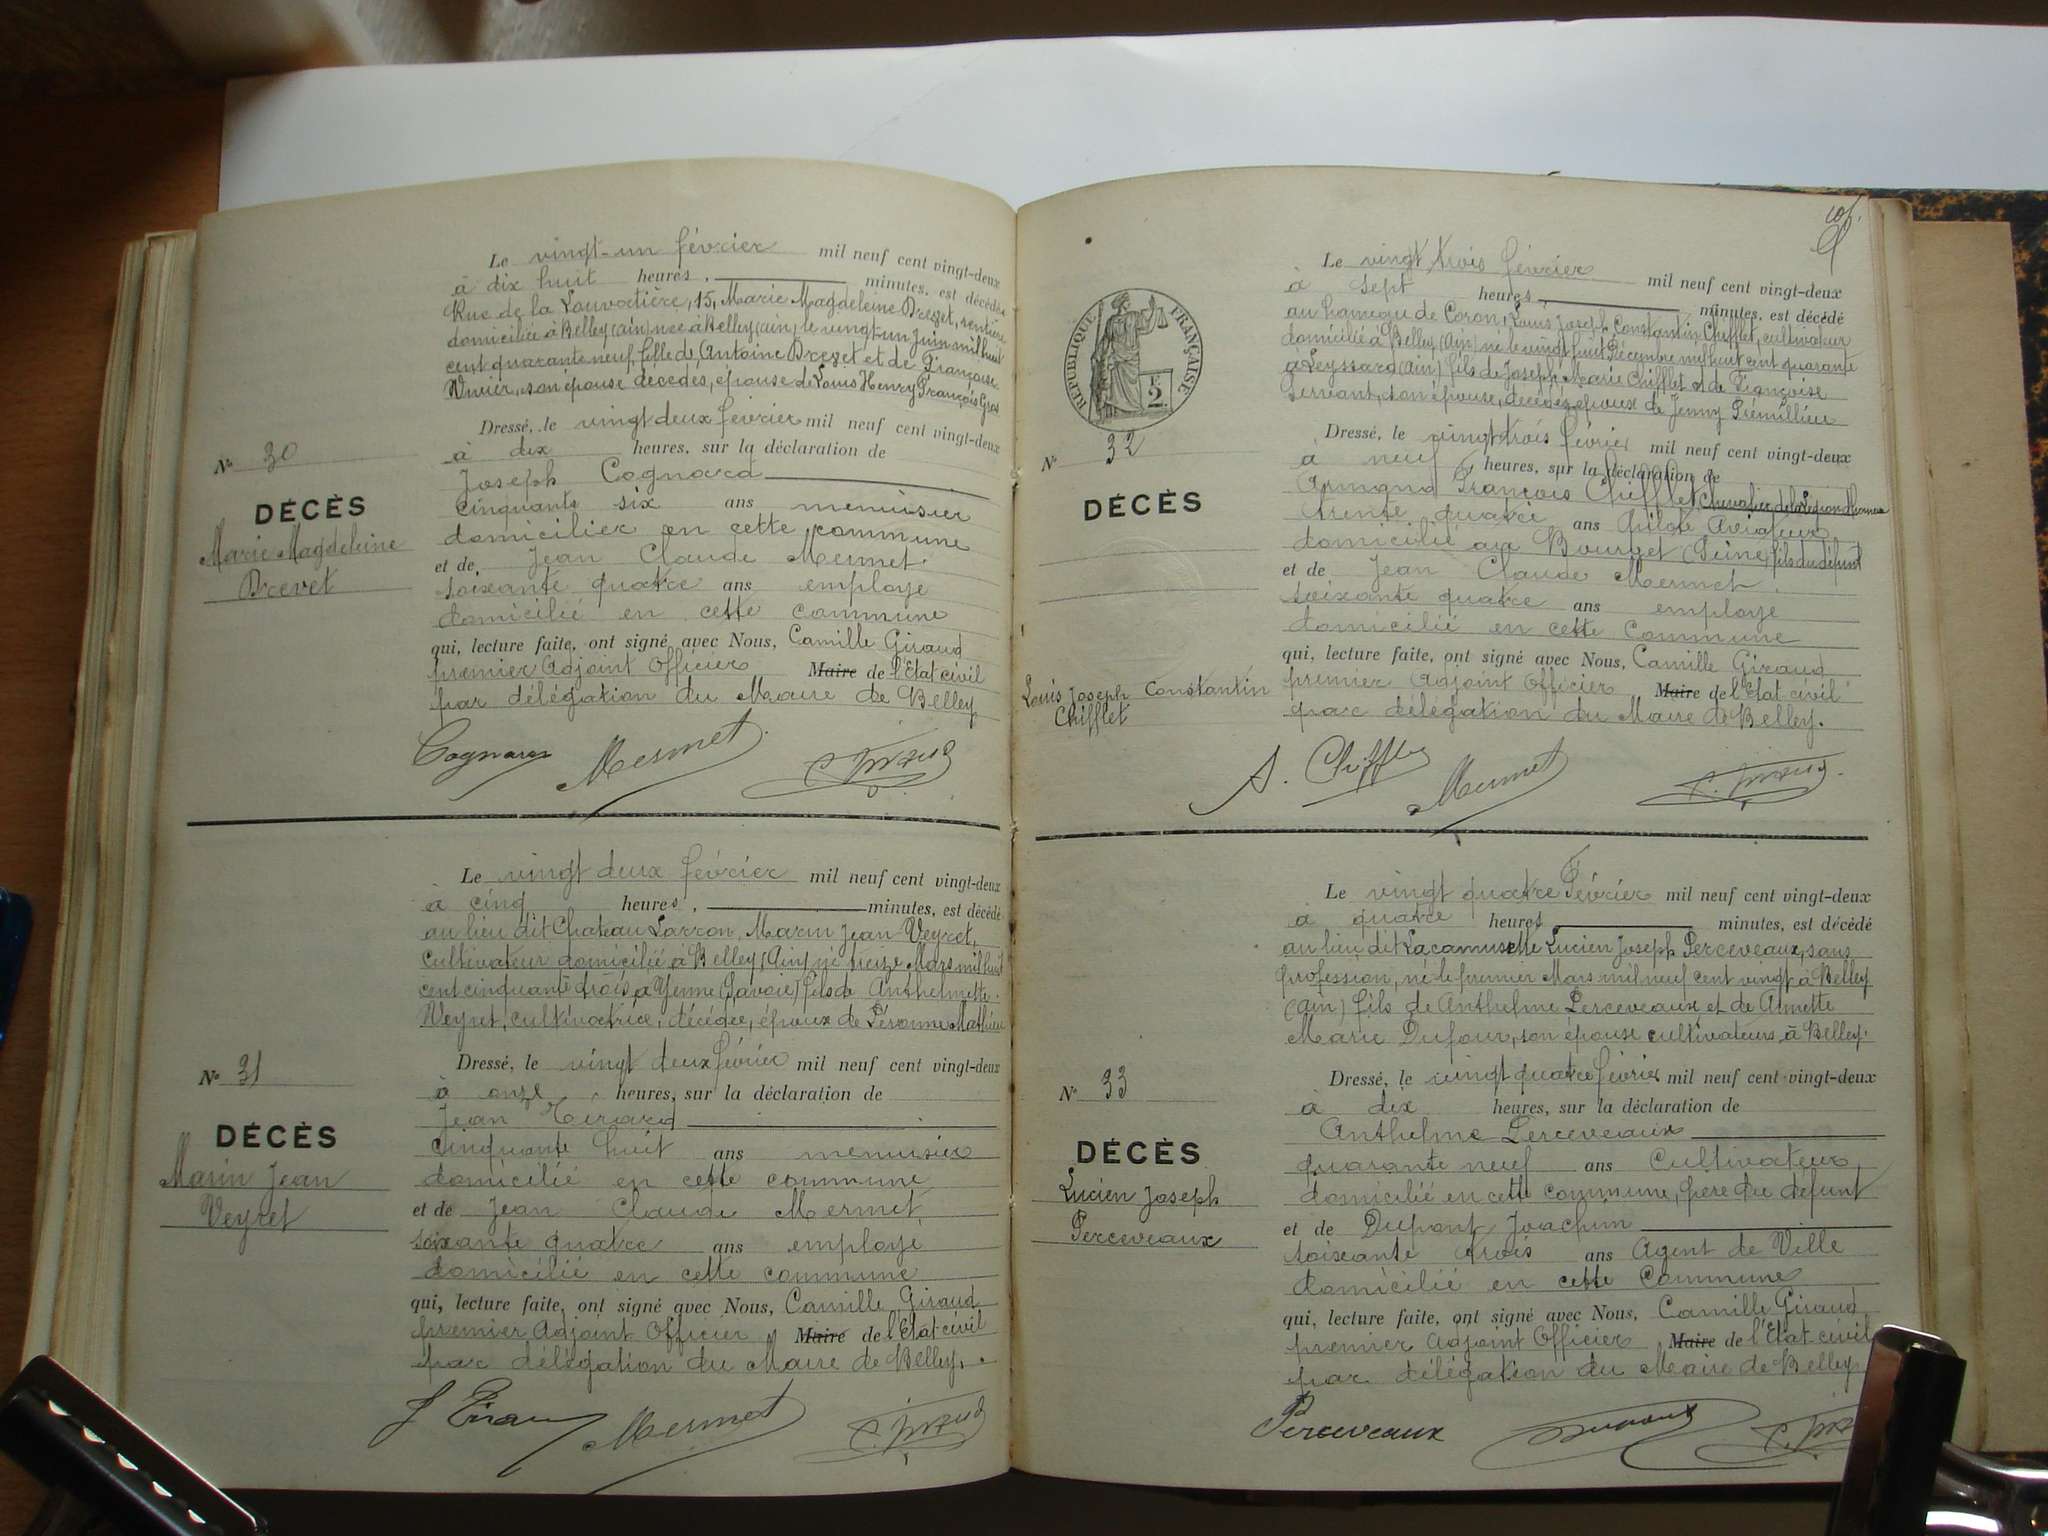 Le vingt-un février mil neuf cent vingt-deux
à dix huit heures, minutes, est décédée
Rue de la Louvatière, 15, Marie Magdeleine Brevet, rentière
domiciliée à Belley (ain) née à Belley (ain) le vingt un Juin mil huit
cent quarante neuf, fille de Antoine Brevet et de Françoise
son épouse décédés, épouse de Louis Henry François Gros
Dressé, le vingt deux février mil neuf cent vingt-deux
à dix heures, sur la déclaration de
Joseph Cognard
cinquante six ans menuisier
domicilier en cette commune
et de Jean Claude Mermet
soixante quatre ans employe
domicilié en cette commune
qui, lecture faite, ont signé avec Nous, Camille Giraud
premier Adjoint Officier Maire de l'Etat civil
par délégation du Maire de Belley
N° 30
DÉCÈS
Marie Magdeleine
Brevet
Cognard Mermet C. Giraud
Le vingt deux février mil neuf cent vingt-deux
à cinq heures, minutes, est décédé
au lieu dit Chateau Larron, Marin Jean Veyret,
cultivateur domicilié à Belley (Ain) né Mars mil huit
cent cinquante trois à Yenne (Savoie) fils de Anthelmette
Veyret, cultivatrice, décédée, époux de Péronne Mathieu
Dressé, le vingt deux février mil neuf cent vingt-deux
à onze heures, sur la déclaration de
Jean
cinquante huit ans menuisier
domicilié en cette commune
et de Jean Claude Mermet,
soixante quatre ans employe
domicilié en cette commune
qui, lecture faite, ont signé avec Nous, Camille Giraud
premier Adjoint Officier Maire de l'Etat civil
par délégation du Maire de Belley.
N° 31
DÉCÈS
Marin Jean
Veyret
Mermet C. Giraud
RÉPUBLIQUE FRANÇAISE
2
Le vingt trois février mil neuf cent vingt-deux
à sept heures, minutes, est décédé
au hameau de Coron, Louis Joseph Constantin Chifflet, cultivateur
domicilié à Belley (Ain) né le vingt huit Décembre mil huit cent quarante
à Leyssard (ain) fils de Joseph Marie Chifflet et de Françoise
Servant, son épouse, décédés, époux de Jenny Prémillieu
Dressé, le vingt trois février mil neuf cent vingt-deux
à neuf heures, sur la déclaration de
Armand François Chifflet, Chevalier de la Légion d'honneur
trente quatre ans Pilote Aviateur
domicilié au Bourget (Seine) fils du défunt
et de Jean Claude Mermet
soixante quatre ans employe
domicilié en cette Commune
qui, lecture faite, ont signé avec Nous, Camille Giraud
premier Adjoint Officier Maire de l'Etat civil
par délégation du Maire de Belley.
N° 32
DÉCÈS
Louis Joseph Constantin
Chifflet
A. Chifflet Mermet C. Giraud
Le vingt quatre Février mil neuf cent vingt-deux
à quatre heures minutes, est décédé
au lieu dit Lacamusette Lucien Joseph Perceveaux, sans
profession, né le premier Mars mil neuf cent vingt à Belley
(ain) fils de Anthelme Perceveaux et de Annette
Marie Dufour, son épouse cultivateurs à Belley.
Dressé, le vingt quatre février mil neuf cent vingt-deux
à dix heures, sur la déclaration de
Anthelme Perceveaux
quarante neuf ans Cultivateur,
domicilié en cette commune, père du défunt
et de Dupont Joachim
soixante trois ans Agent de Ville
domicilié en cette Commune
qui, lecture faite, ont signé avec Nous, Camille Giraud
premier Adjoint Officier Maire de l'Etat civil
par délégation du Maire de Belley
N° 33
DÉCÈS
Lucien Joseph
Perceveaux
Perceveaux Dupont C. Giraud